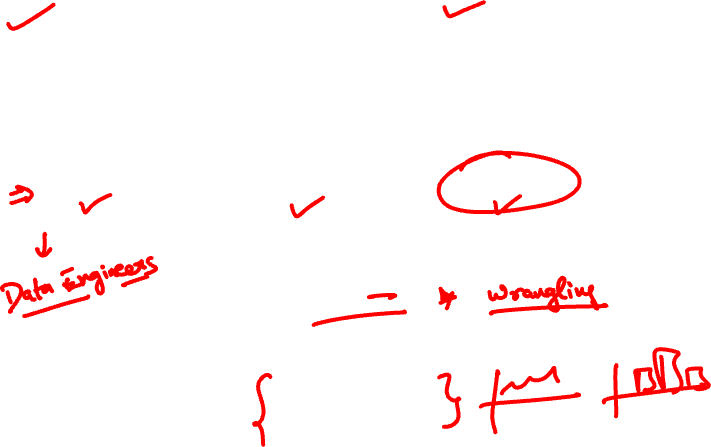 Data Engineers
* Wrangling
{ }